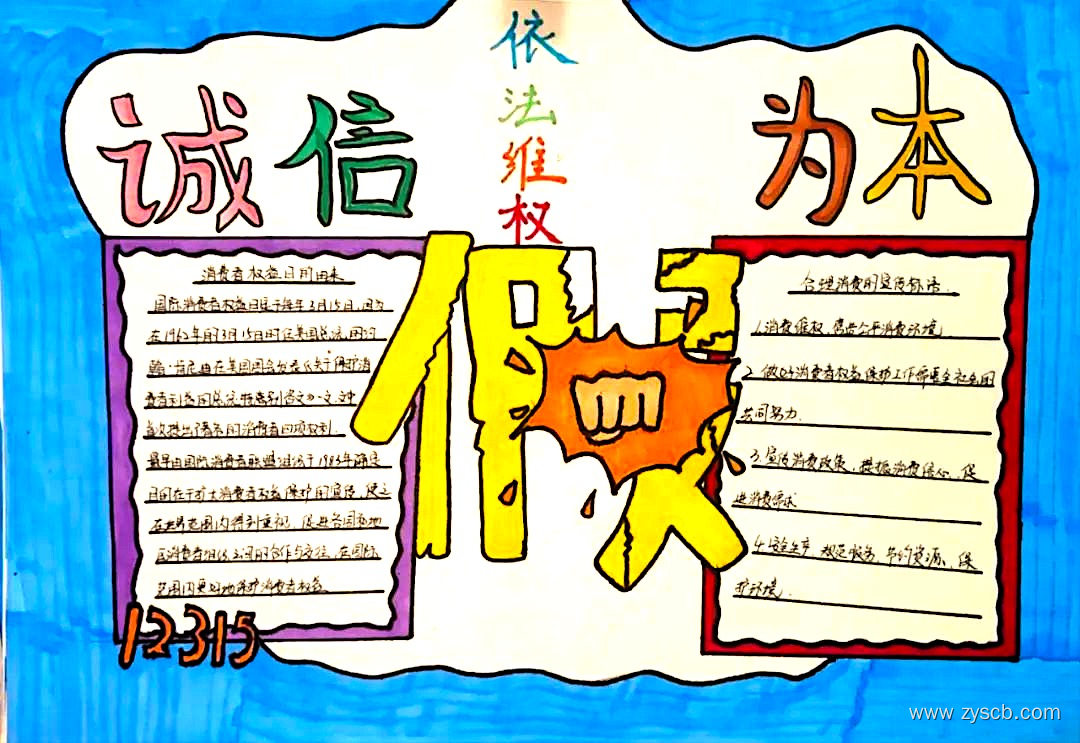 依法维权
诚信 为本
假
消费者权益日的由来
国际消费者权益日定于每年3月15日,因为
在1962年的3月15日时任美国总统的约
翰·肯尼迪在美国国会发表《关于保护消
费者利益的总统特别咨文》一文,文中
首次提出了著名的消费者四项权利.
最早由国际消费者联盟组织于1983年确定
目的在于扩大消费者权益保护的宣传,使之
在世界范围内得到重视,促进各国和地
区消费者组织之间的合作与交往,在国际
范围内更好地保护消费者权益.
12315
合理消费的宣传标语.
1.消费维权,营造公平消费环境
2.做好消费者权益保护工作需要全社会的
共同努力.
3.宣传消费政策,提振消费信心,促
进消费需求
4.安全生产,规范服务,节约资源,保
护环境.
www.zyscb.com